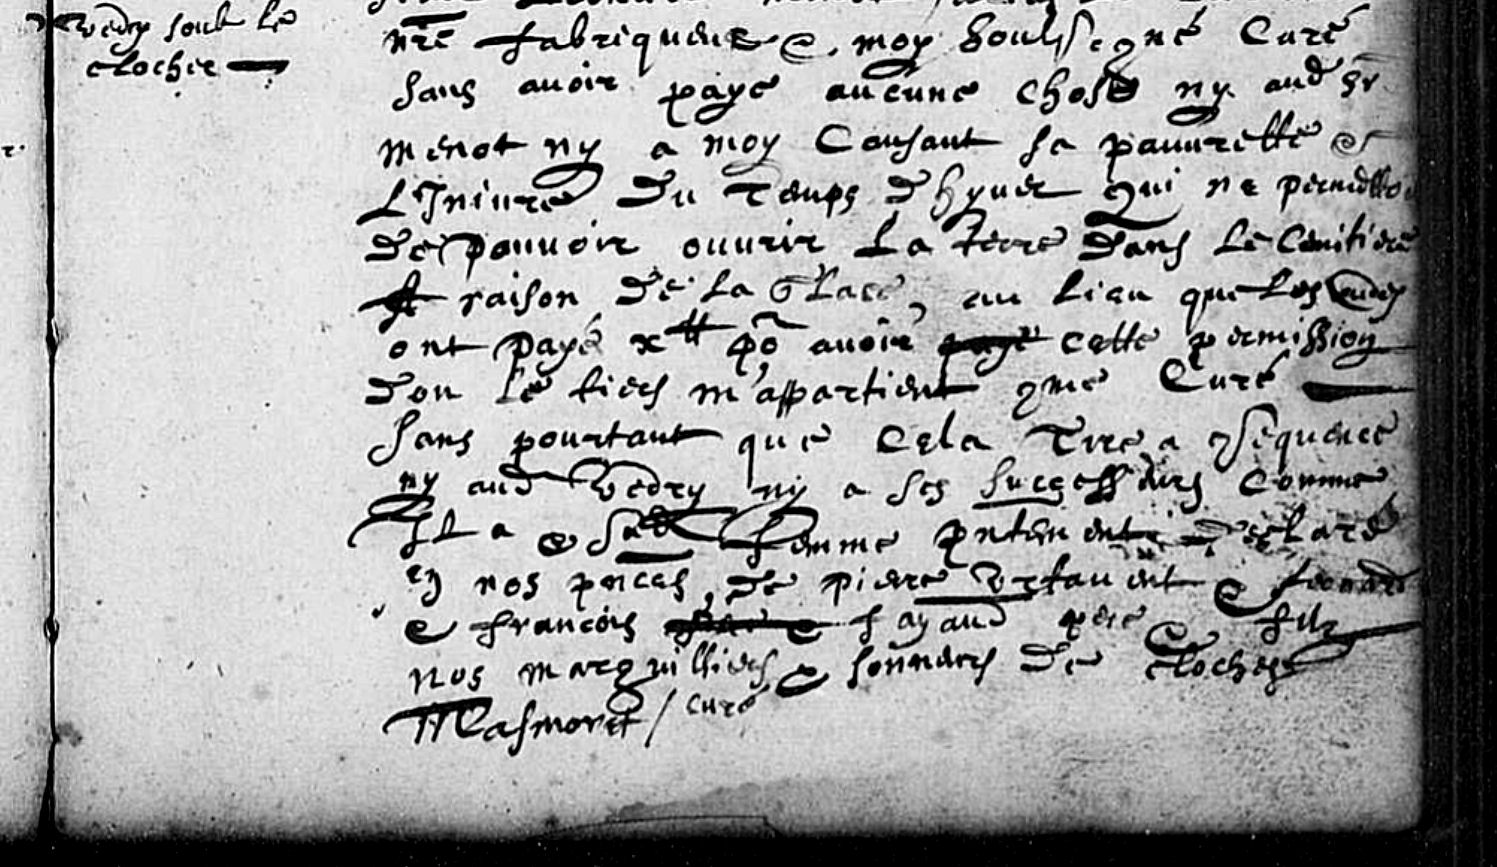 vedry soub le
clocher
nre fabriqueur & moy soubssigné Curé
sans avoir payé aucune chose ny aud sr
menot ny a moy Causant sa pauvrette &
L'Iniure du Temps d'hyver qui ne permettoit
de pouvoir ouvrir La terre dans Le Cemitiere
A raison de La Glace, au lieu que Les
ont payé x tt po avoir payé cette permission
dou le tiers m'appartient 9me Curé
Sans pourtant que cela Tire a 9sequence
ny aud Vedry ny a ses successeurs Comme
IL a & sad femme pntement declaré
en nos pnces, de piere & Leonard
& francois fayaud pere & filz
nos marguilliers & sonneurs de cloches
Masmoret / curé